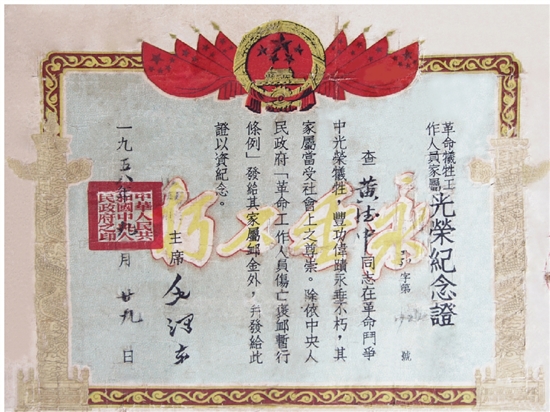 革命犧牲工
作人員家屬
光榮紀念證
字第 號
查 黃 同志在革命鬥爭
中光榮犧牲,豐功偉蹟永垂不朽,其
家屬當受社會上之尊崇。除依中央人
民政府「革命工作人員傷亡褒卹暫行
條例」發給其家屬卹金外,并發給此
證以資紀念。
永垂不朽
主席 毛澤東
一九五八年 月廿九日
中華人民共
和國中央人
民政府之印